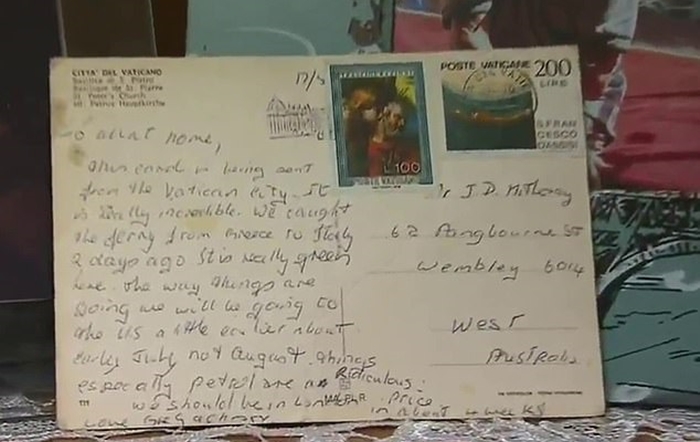 CITTA' DEL VATICANO
Basilica di S. Pietro
Basilique de St. Pierre
St. Peter's Church
St. Petrus Hauptkirche
17/5
POSTE VATICANE 200
LIRE
S.FRAN
CESCO
D'ASSISI
L.100
To all at Home,
This card is being sent
from the Vatican City. It
is really incredible. We caught
the ferry from Greece to Italy
2 days ago It is really green
here. The way things are
going we will be going to
the US a little earlier about
early July not August. Things
especially petrol are a Ridiculous
Price
we should be in London in about 4 weeks
Love
Mr J. D.
62 Pangbourne St
Wembley 6014
West
Australia